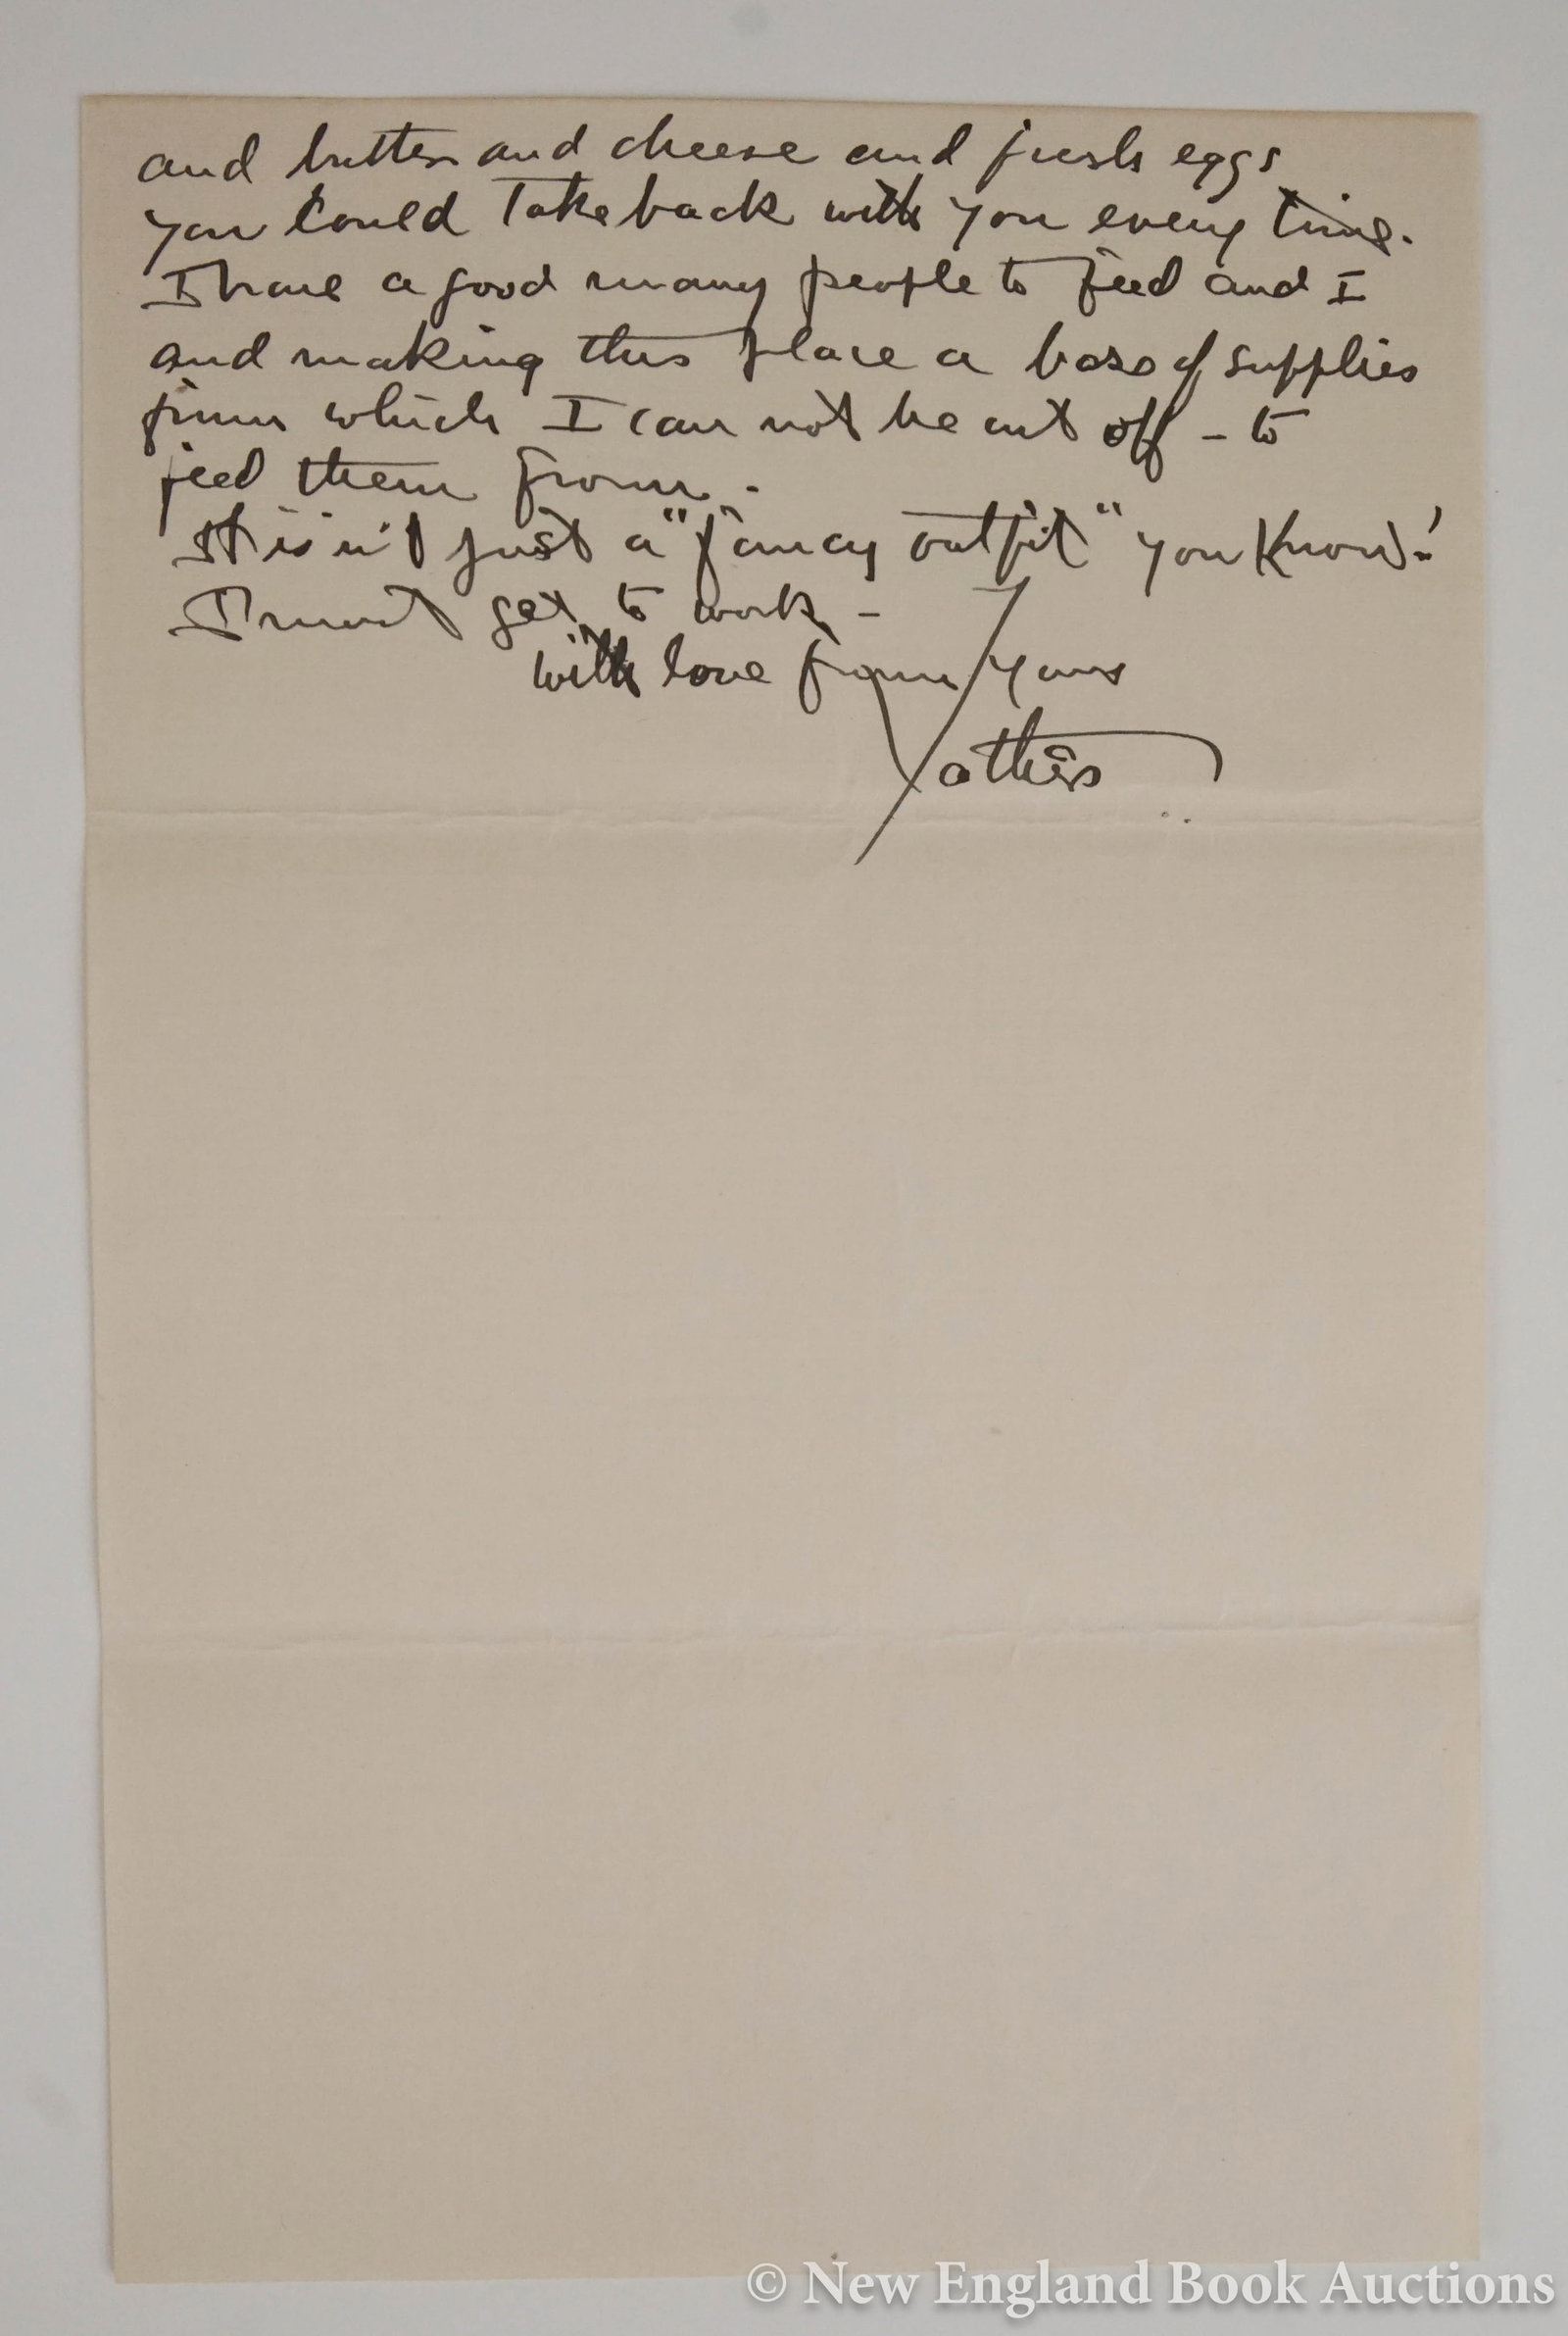 and butter and cheese and fresh eggs
you could take back with you every time.
I have a good many people to feed and I
and making this place a base of supplies
from which I can not be cut off – to
feed them from.
It isn't just a "fancy outfit" you know!
I must get to work –
with love from Yours
Father
© New England Book Auctions